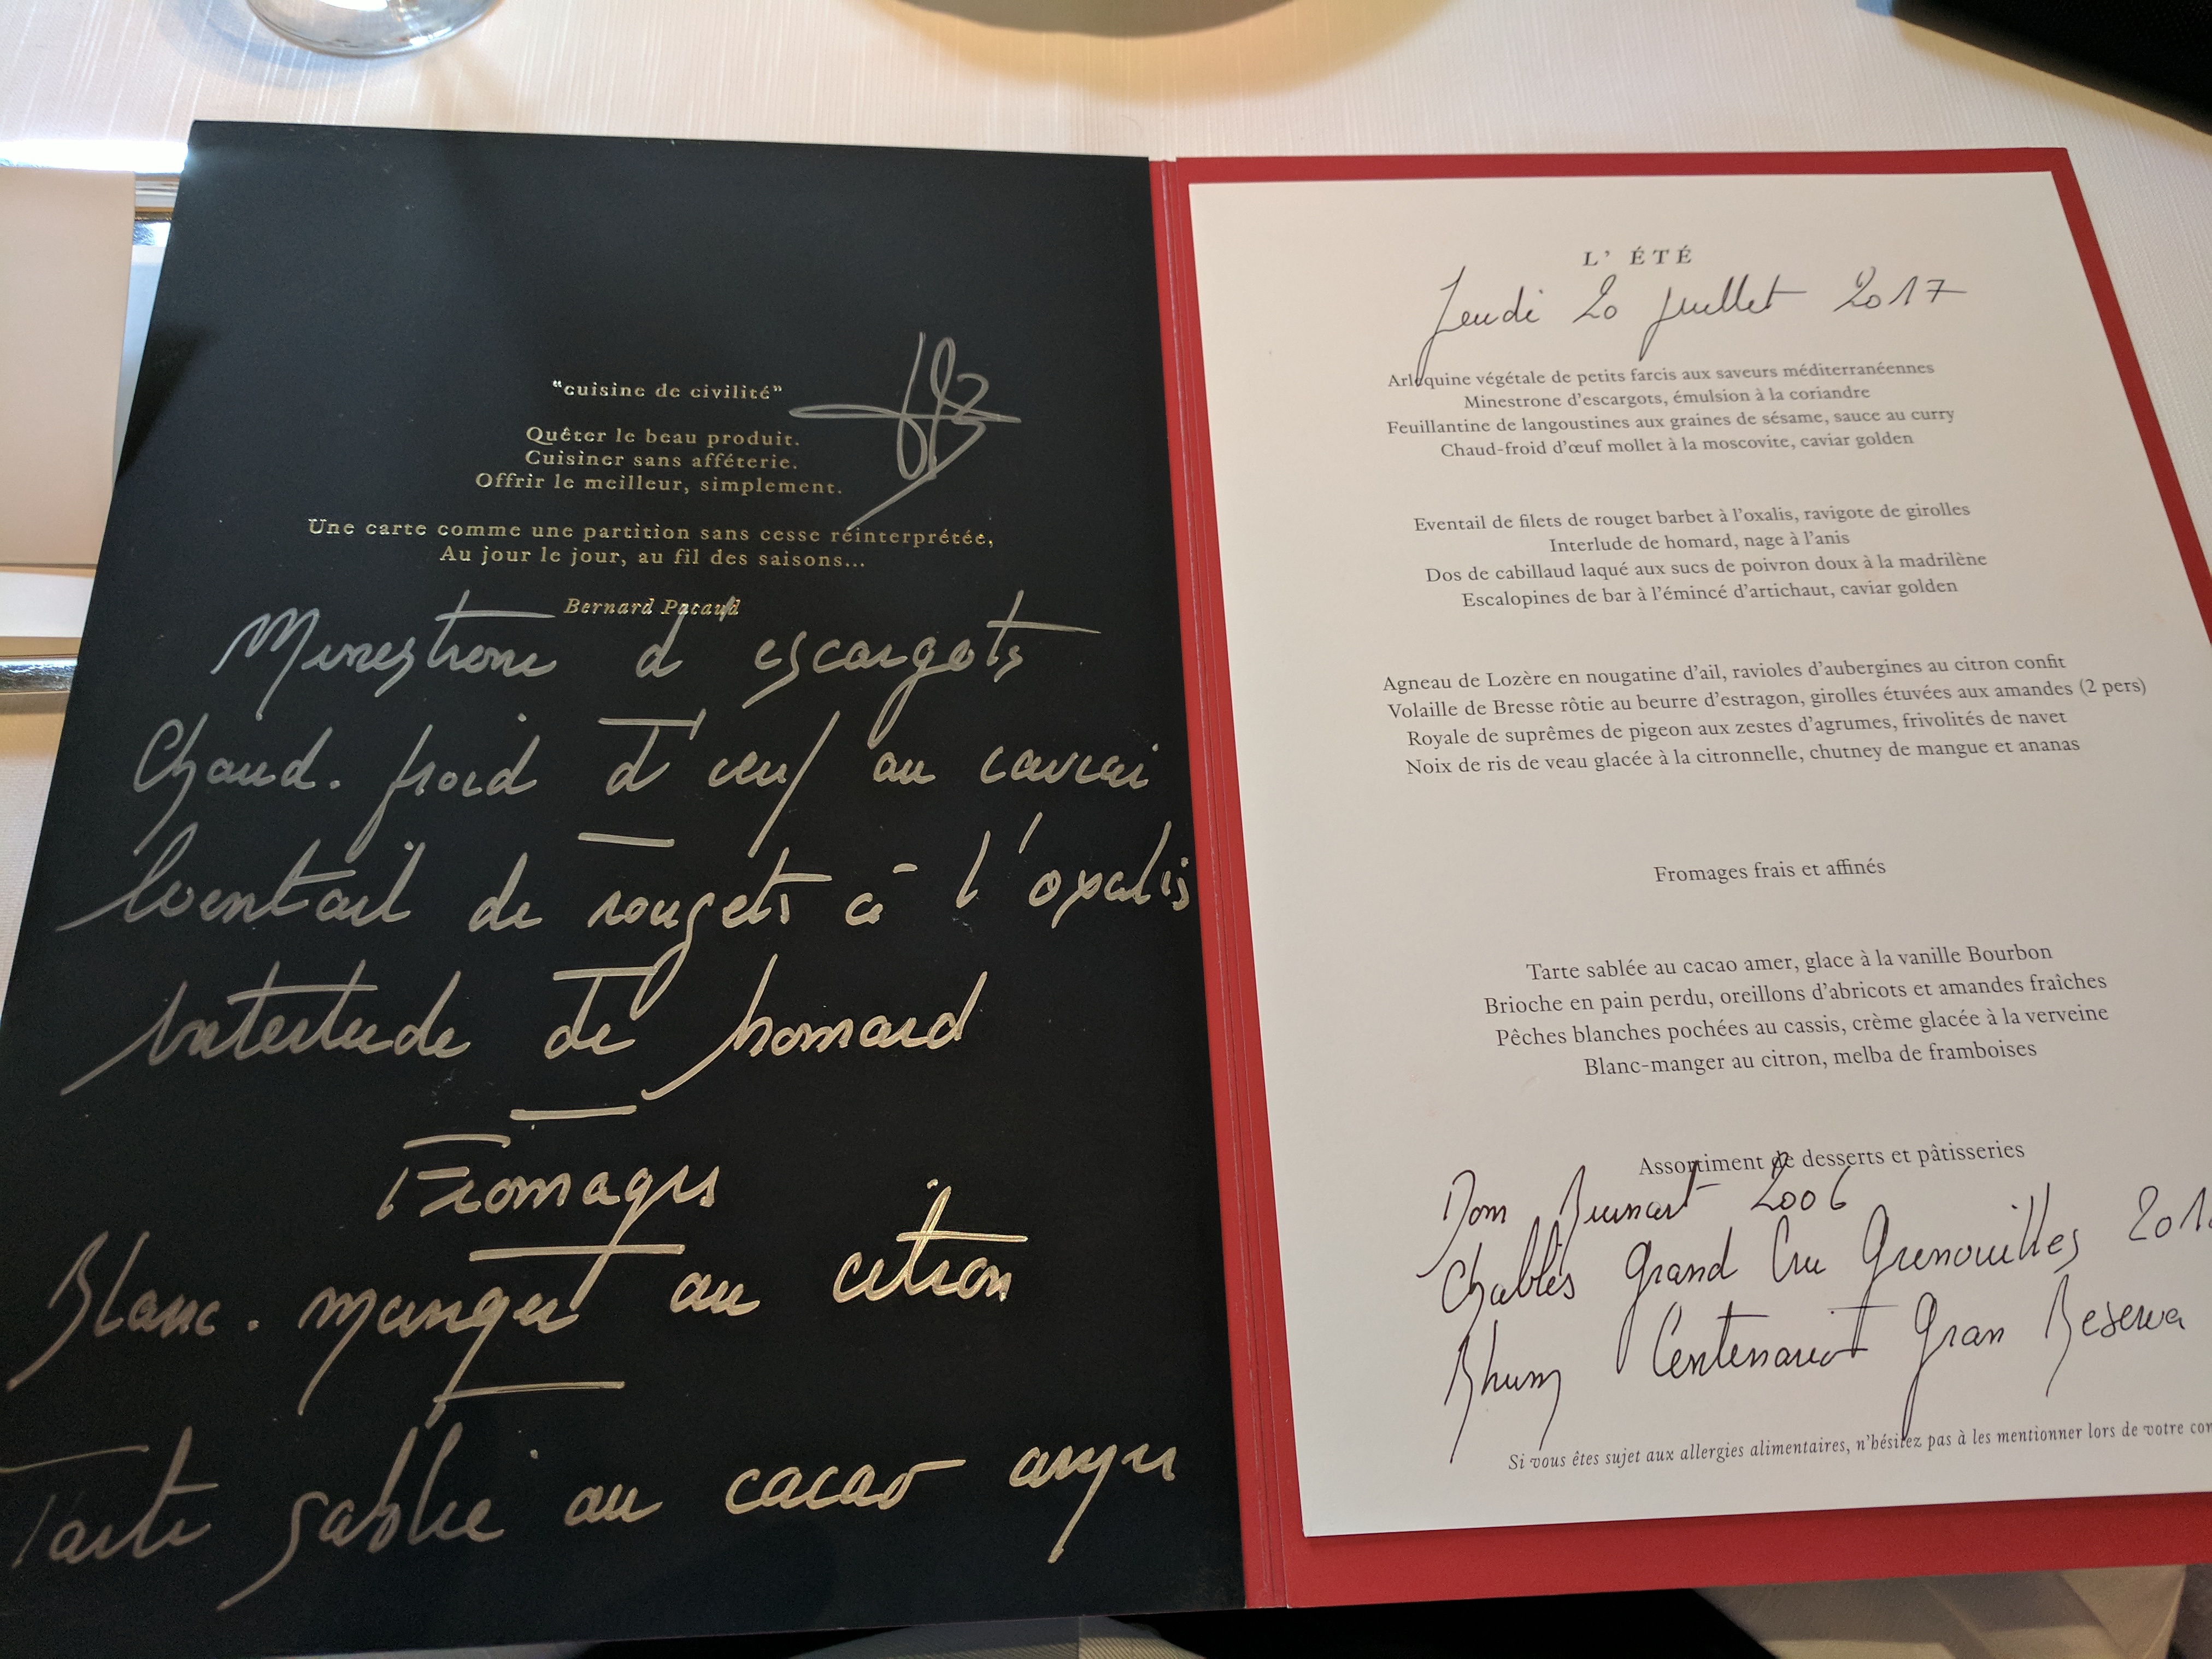 "cuisine de civilité"
Quêter le beau produit.
Cuisiner sans afféterie.
Offrir le meilleur, simplement.
Une carte comme une partition sans cesse réinterprétée,
Au jour le jour, au fil des saisons...
Bernard Pacaud
Minestrone d'escargots
Chaud-froid d'œuf au caviar
Eventail de rougets à l'oxalis
Interlude de homard
Fromages
Blanc-manger au citron
Tarte sablée au cacao amer
L' ÉTÉ
Jeudi 20 juillet 2017
Arlequine végétale de petits farcis aux saveurs méditerranéennes
Minestrone d'escargots, émulsion à la coriandre
Feuillantine de langoustines aux graines de sésame, sauce au curry
Chaud-froid d'œuf mollet à la moscovite, caviar golden
Eventail de filets de rouget barbet à l'oxalis, ravigote de girolles
Interlude de homard, nage à l'anis
Dos de cabillaud laqué aux sucs de poivron doux à la madrilène
Escalopines de bar à l'émincé d'artichaut, caviar golden
Agneau de Lozère en nougatine d'ail, ravioles d'aubergines au citron confit
Volaille de Bresse rôtie au beurre d'estragon, girolles étuvées aux amandes (2 pers)
Royale de suprêmes de pigeon aux zestes d'agrumes, frivolités de navet
Noix de ris de veau glacée à la citronnelle, chutney de mangue et ananas
Fromages frais et affinés
Tarte sablée au cacao amer, glace à la vanille Bourbon
Brioche en pain perdu, oreillons d'abricots et amandes fraîches
Pêches blanches pochées au cassis, crème glacée à la verveine
Blanc-manger au citron, melba de framboises
Assortiment de desserts et pâtisseries
Dom Ruinart 2006
Chablis Grand Cru Grenouilles
Rhum Centenario Gran Reserva
Si vous êtes sujet aux allergies alimentaires, n'hésitez pas à les mentionner lors de votre